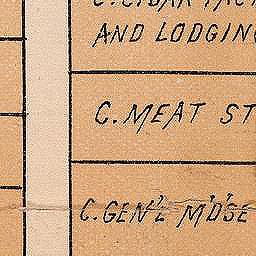 C. CIGAR FACT
AND LODGING
C. MEAT ST
C. GEN'L M'D'SE